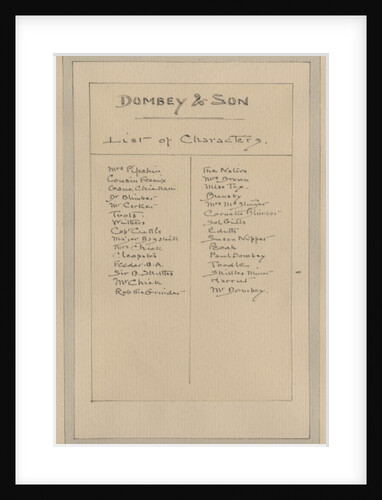 DOMBEY & SON
List of Characters.
Mrs Pipchin
Cousin Feenix
Game Chicken
Dr Blimber
Mr Carker
Toots
Withers
Cap Cuttle
Major Bagstock
Mrs Chick
Cleopatra
Feeder B.A.
Sir B. Skettles
Mr Chick
Rob the Grinder
The Native
Mrs Brown
Miss Tox
Bunsby
Mrs McStinger
Cornelia Blimber
Sol Gills
Edith
Susan Nipper
Paul Dombey
Toodle
Skettles Minor
Harriet
Mr Dombey.